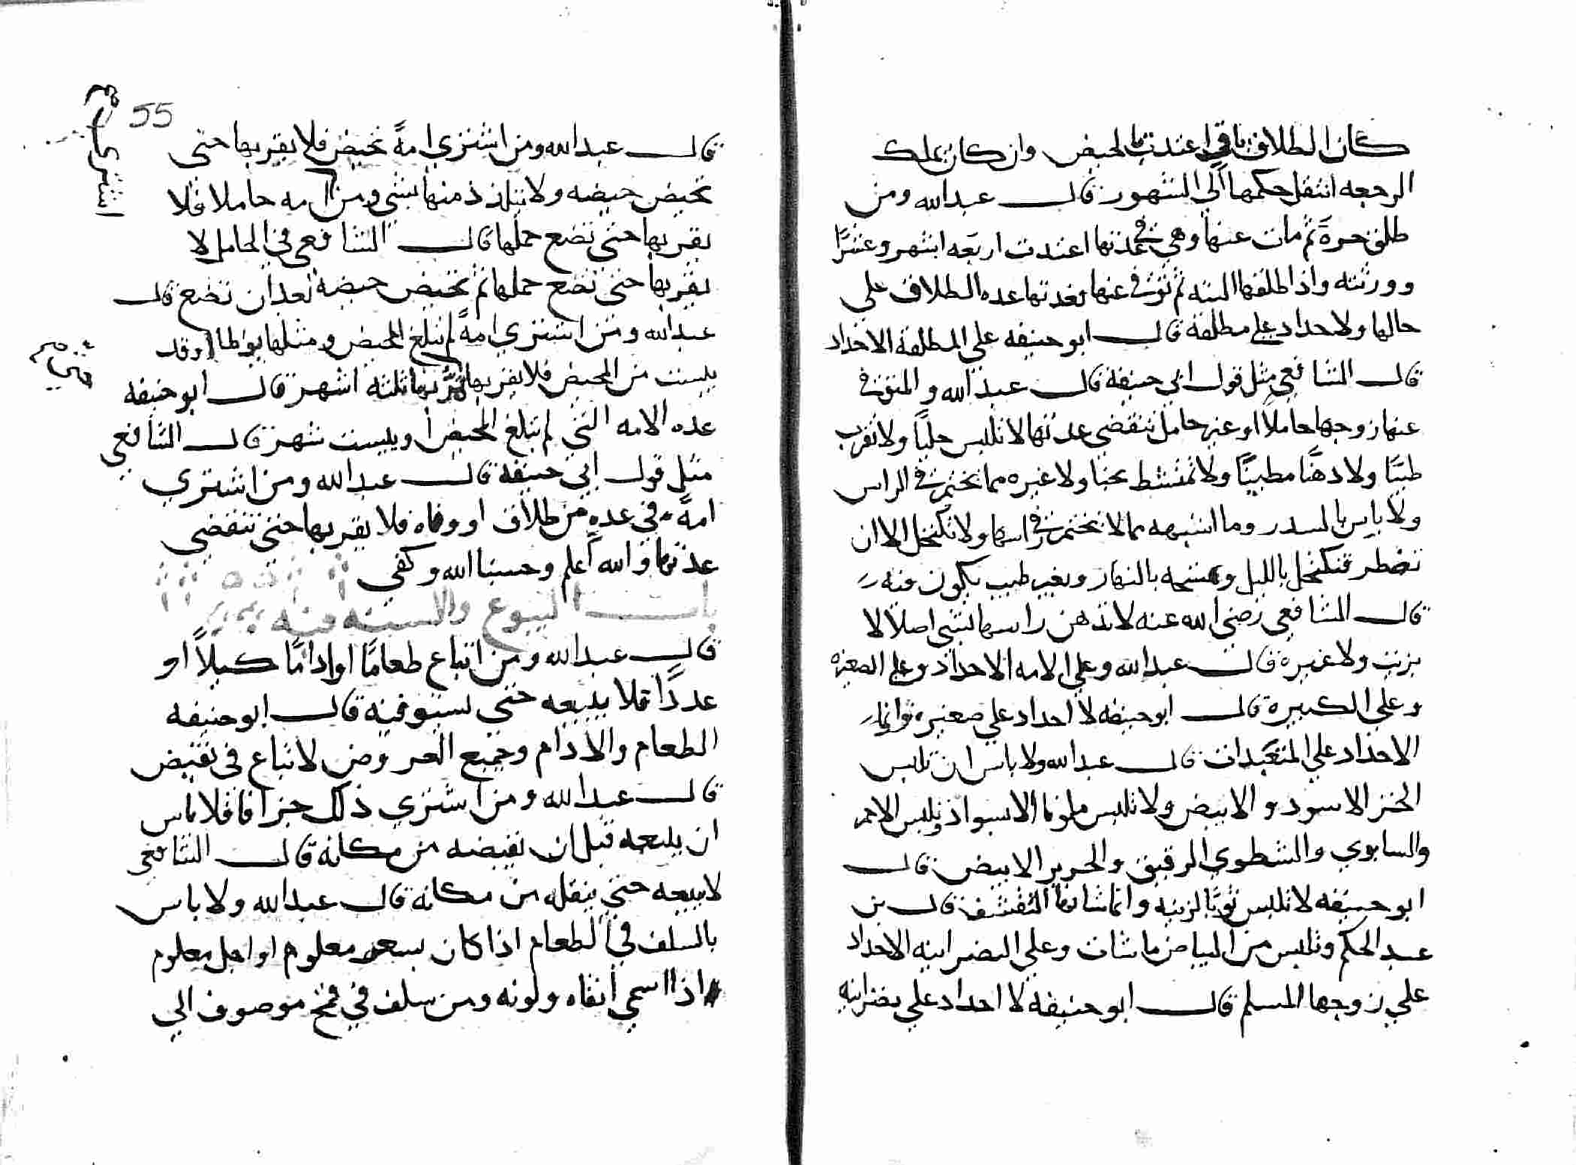 كان الطلاق باقي اعتدت بالحيض وان كان يملك
الرجعه انتقل حكمها الى الشهور قال عبد الله ومن
طلق حرة ثم مات عنها وهي في عدتها اعتدت اربعه اشهر وعشرا
وورثته واذا طلقها البته ثم توفي عنها فعدتها عده الطلاق على
حالها ولا حداد على مطلقة قال ابو حنيفه على المطلقة الاحداد
قال الشافعي مثل قول ابي حنيفة قال عبد الله والمتوفي
عنها زوجها حاملا او غير حامل تنقضي عدتها لا تلبس حليا ولا تقرب
طيبا ولا دهنا مطيبا ولا تمتشط بحنا ولا غيره مما يختمر في الراس
ولا باس بالسدر وما اشبهه مما لا يختمر في راسها ولا تكتحل الا ان
تضطر فتكتحل بالليل وتمسحه بالنهار وبغير طيب يكون فيه
قال الشافعي رضي الله عنه لا تدهن راسها بشي اصلا لا
بزيت ولا غيره قال عبد الله وعلى الامه الاحداد وعلى الصغيره
وعلى الكبيرة قال ابو حنيفه لا احداد على صغيره وانما
الاحداد على المتعبدات قال عبد الله ولا باس ان تلبس
الخز الاسود والابيض ولا تلبس ملونا الا سواد وتلبس الاحمر
والسابوي والشطوي الرقيق والحرير الابيض قال
ابو حنيفه لا تلبس ثوبا لزينه وانما شانها التقشف قال بن
عبد الحكم وتلبس من البياض ما شات وعلى النصرانيه الاحداد
على زوجها المسلم قال ابو حنيفة لا احداد على نصرانيه
55
اشترى
صح
قال عبد الله ومن اشتري امة تحيض فلا يقربها حتى
تحيض حيضه ولا يتلذذ منها بشي ومن امه حاملا فلا
يقربها حتى تضع حملها قال الشافعي في الحامل لا
يقربها حتى تضع حملها ثم تحيض حيضة بعد ان تضع قال
عبد الله ومن اشتري امة لم تبلغ المحيض ومثلها يوطا او قد
يئست من المحيض فلا يقربها ثلثه اشهر قال ابو حنيفه
عده الامه التي لم تبلغ المحيض او يئست شهر قال الشافعي
مثل قول ابي حنيفة قال عبد الله ومن اشتري
امة في عدة من طلاق او وفاه فلا يقربها حتى تنقضي
عدتها والله اعلم وحسبنا الله وكفي
باب البيوع والسنه فيه
قال عبد الله ومن ابتاع طعاما او اداما كيلا او
عددا فلا يبيعه حتى يستوفيه قال ابو حنيفه
الطعام والادام وجميع العروض لا تباع في تقبض
قال عبد الله ومن اشتري ذلك جزافا فلا باس
ان يبيعه قبل ان يقبضه من مكانه قال الشافعي
لا يبيعه حتى ينقله من مكانه قال عبد الله ولا باس
بالسلف في الطعام اذا كان بسعر معلوم او اجل معلوم
اذا اسمي انقاه ولونه ومن سلف في قمح موصوف الي